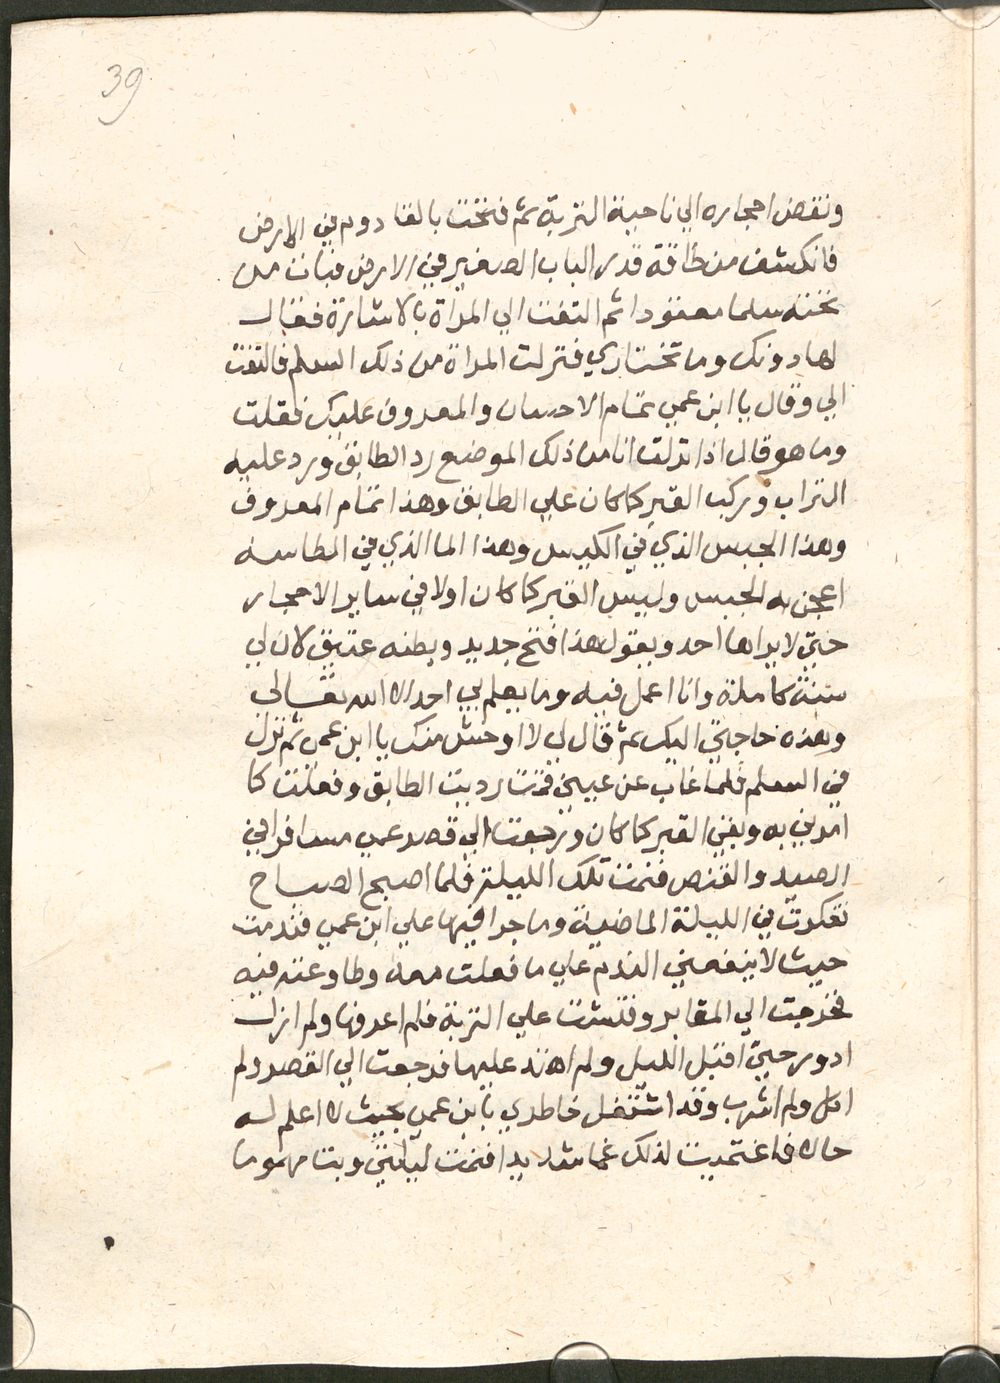 39
ونقض احجاره الي ناحية التربة ثم فتحت بالقادوم في الارض
فانكشف من طاقة قدر الباب الصغير في الارض فبانت من
تحته سلما معقودا ثم التفت الي المراة بالاشارة فقال
لها دونك وما تختاري فنزلت المراة من ذلك السلم فالتفت
الي وقال يا ابن عمي تمام الاحسان والمعروف عليك فقلت
وما هو قال اذا نزلت انا من ذلك الموضع رد الطابق ورد عليه
التراب وركب القبر كما كان علي الطابق وهذا تمام المعروف
وهذا الجبس الذي في الكيس وهذا الما الذي في الطاسه
اعجن به الجبس وليس القبر كما كان اولا في ساير الاحجار
حتي لا يراها احد ويقول هذا فتح جديد وبطنه عتيق لان لي
سنة كاملة وانا اعمل فيه وما يعلم بي احد الا الله تعالى
وهذه حاجتي اليك ثم قال لي لا اوحش منك يا ابن عمي ثم نزل
في السلم فلما غاب عن عيني قمت رديت الطابق وفعلت كما
امرني به وبقي القبر كما كان ورجعت الي قصر عمي مسافر في
الصيد والقنص فنمت تلك الليلة فلما اصبح الصباح
تفكرت في الليلة الماضية وما جرا فيها علي ابن عمي فندمت
حيث لا ينفعني الندم علي ما فعلت معه وطاوعته فيه
فخرجت الي المقابر وفتشت علي التربة فلم اعرفها ولم ازل
ادور حتي اقبل الليل ولم اهتد عليها فرجعت الي القصر ولم
اكل ولم اشرب وقد اشتغل خاطري بابن عمي بحيث لا اعلم له
حالا فاغتميت لذلك غما شديدا فنمت ليلتي وبت مهموما